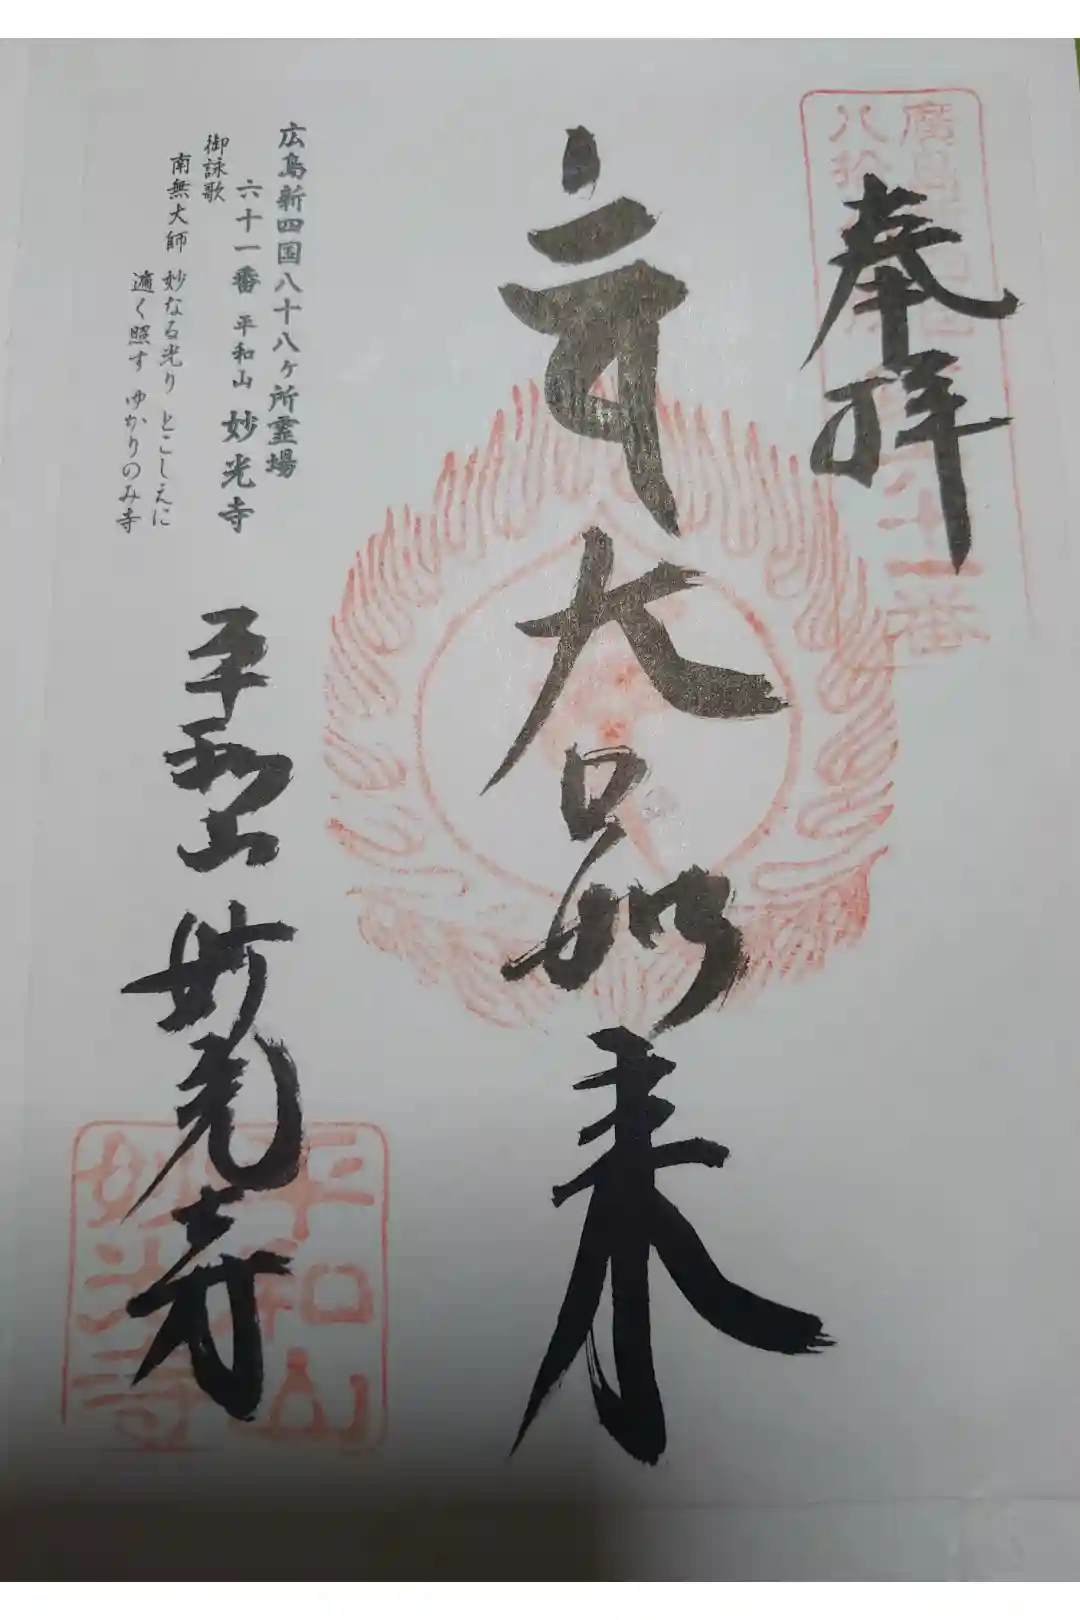 奉拝
大日如来
平和山
妙光寺
広島新四国八十八ヶ所霊場
六十一番 平和山 妙光寺
御詠歌
南無大師 妙なる光り とこしえに
遍く照す ゆかりのみ寺
平和山
妙光寺